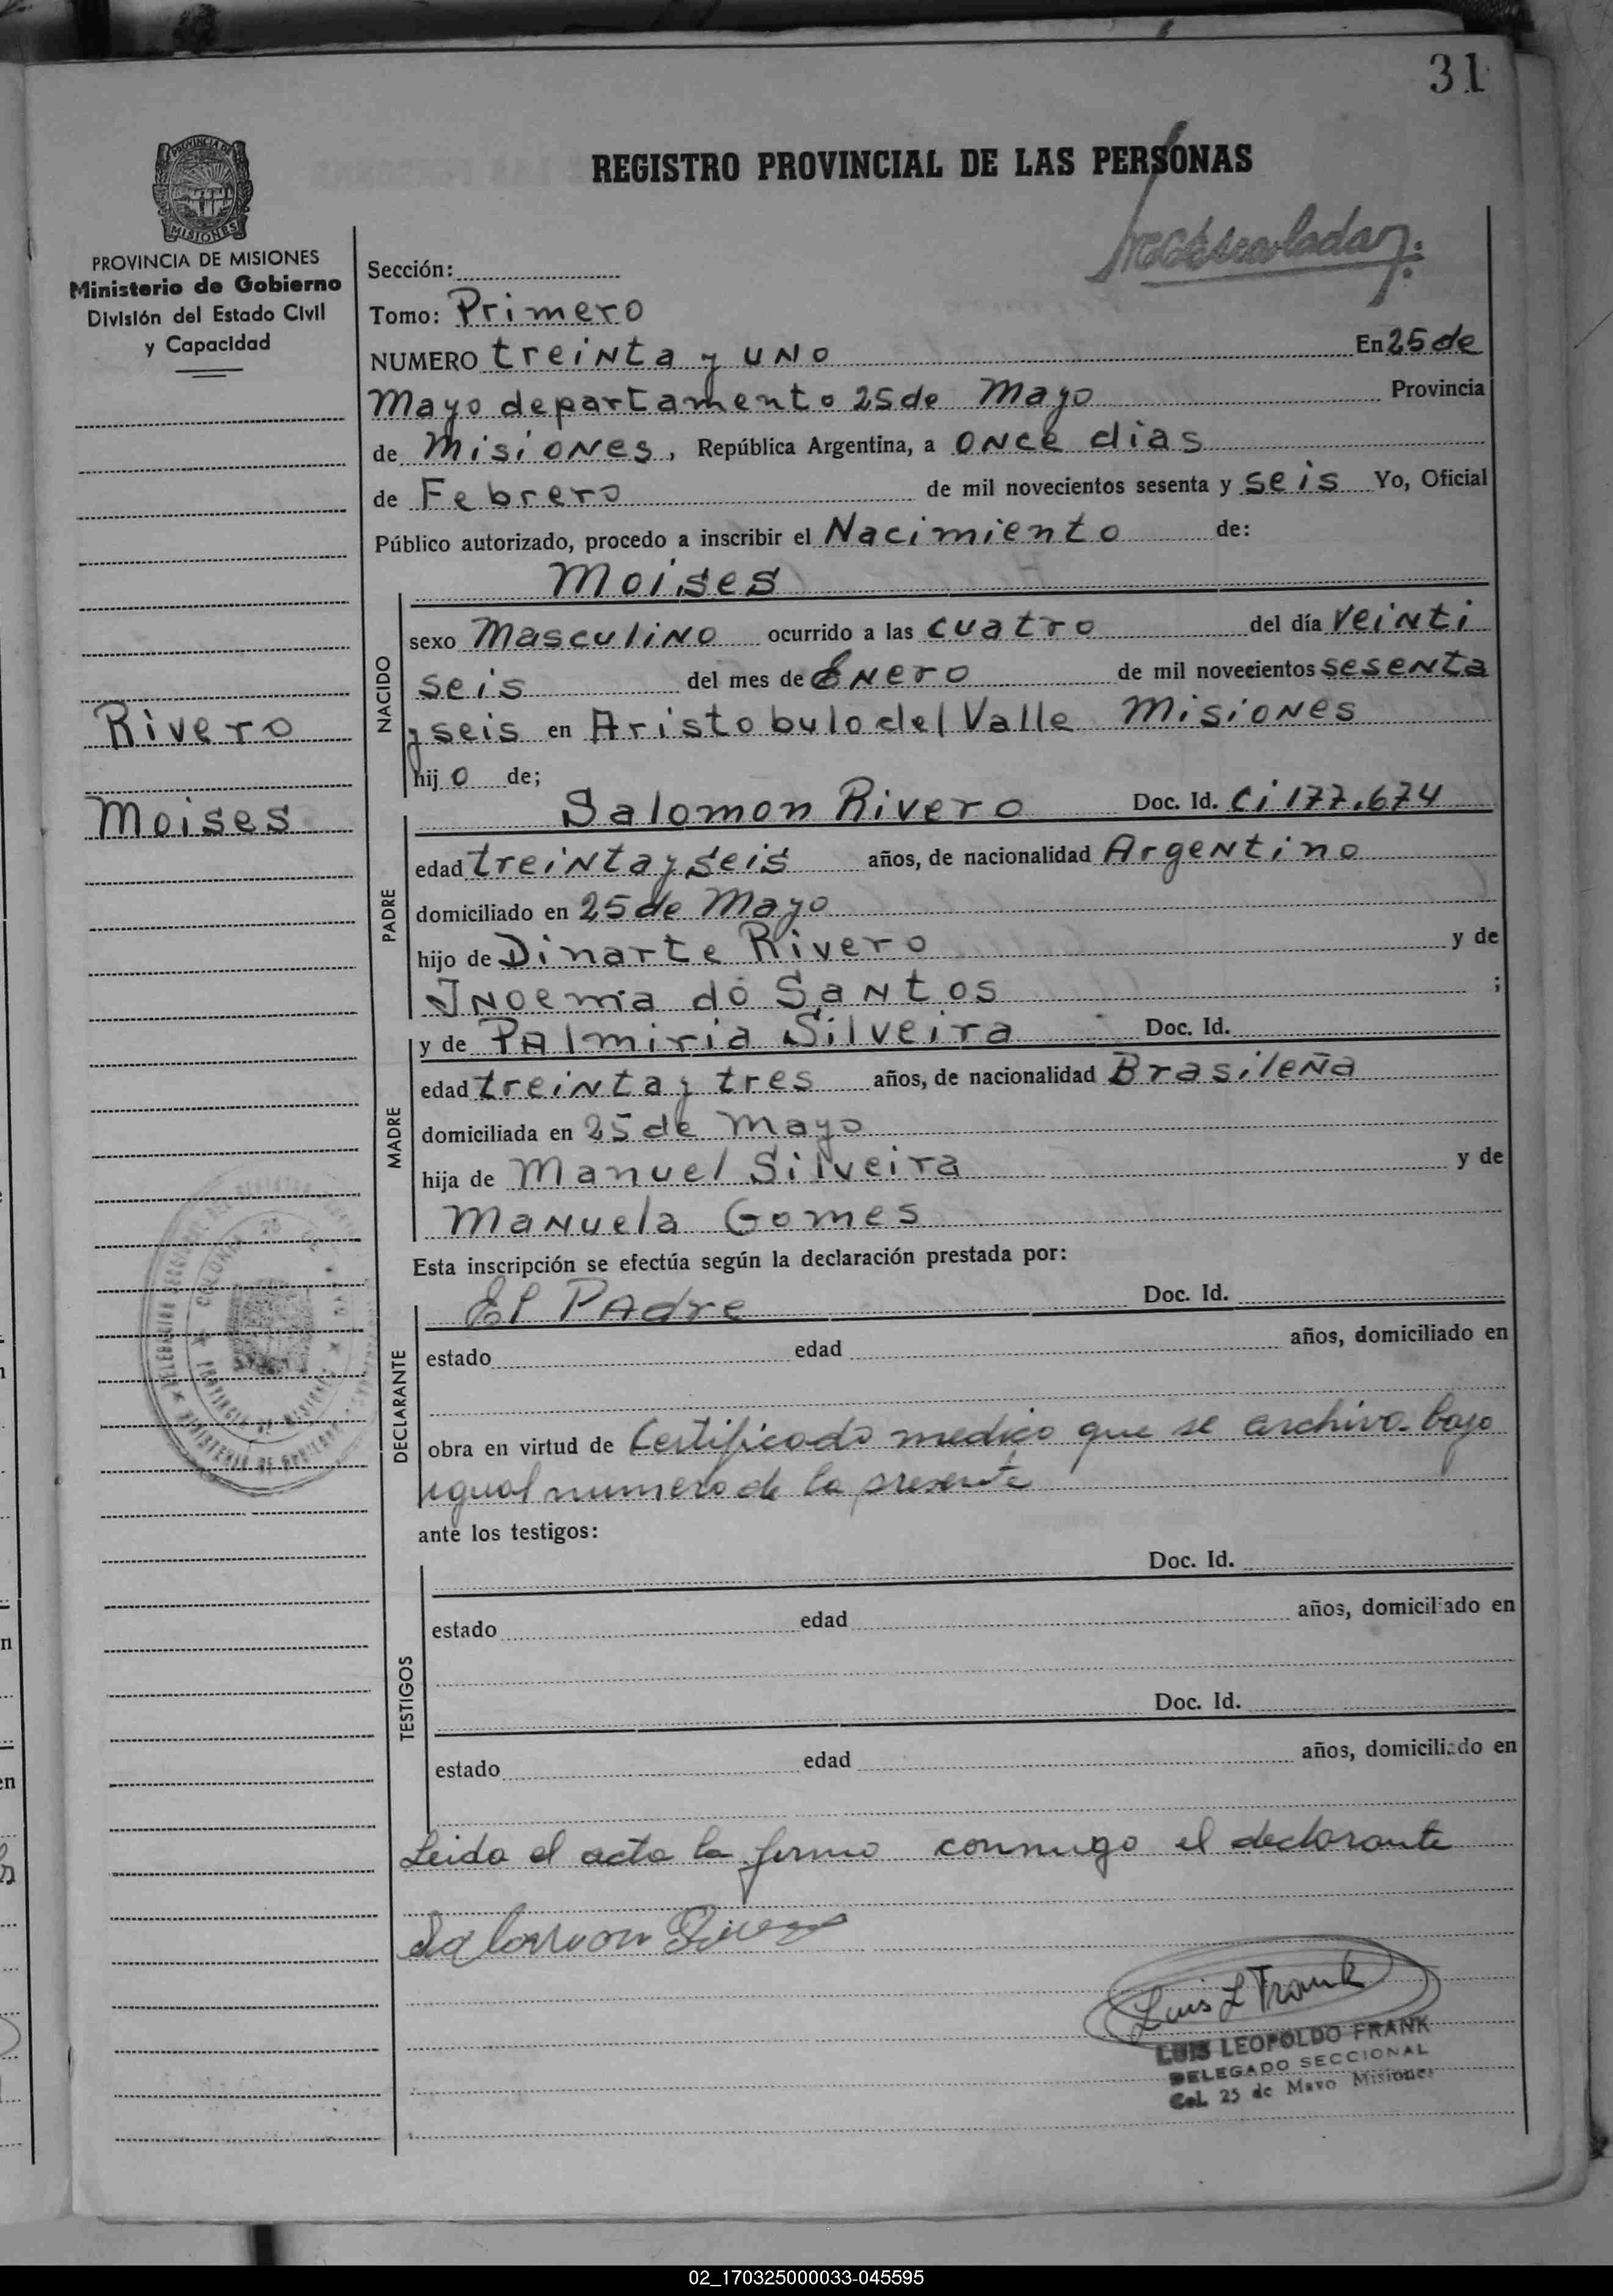 31
REGISTRO PROVINCIAL DE LAS PERSONAS
PROVINCIA DE MISIONES
Ministerio de Gobierno
División del Estado Civil
y Capacidad
Rivero
Moises
Sección:
Tomo: Primero
NUMERO treinta y uno En 25 de
Mayo departamento 25 de Mayo Provincia
de Misiones, República Argentina, a once dias
de Febrero de mil novecientos sesenta y seis Yo, Oficial
Público autorizado, procedo a inscribir el Nacimiento de:
Moises
NACIDO
sexo Masculino ocurrido a las cuatro del día veinti
seis del mes de Enero de mil novecientos sesenta
y seis en Aristobulo del Valle Misiones
hijo de;
PADRE
Salomon Rivero Doc. Id. Ci 177.674
edad treinta y seis años, de nacionalidad Argentino
domiciliado en 25 de Mayo
hijo de Dinarte Rivero y de
Jnoema do Santos ;
MADRE
y de Palmiria Silveira Doc. Id.
edad treinta y tres años, de nacionalidad Brasileña
domiciliada en 25 de Mayo
hija de Manuel Silveira y de
Manuela Gomes
Esta inscripción se efectúa según la declaración prestada por:
DECLARANTE
El Padre Doc. Id.
estado edad años, domiciliado en
obra en virtud de Certificado medico que se archiva bajo
igual numero de la presente
ante los testigos:
TESTIGOS
Doc. Id.
estado edad años, domiciliado en
Doc. Id.
estado edad años, domiciliado en
Leida el acta la firma conmigo el declarante
Salomon Rivero
Luis L Frank
LUIS LEOPOLDO FRANK
DELEGADO SECCIONAL
Col. 25 de Mayo Misiones
02_170325000033-045595